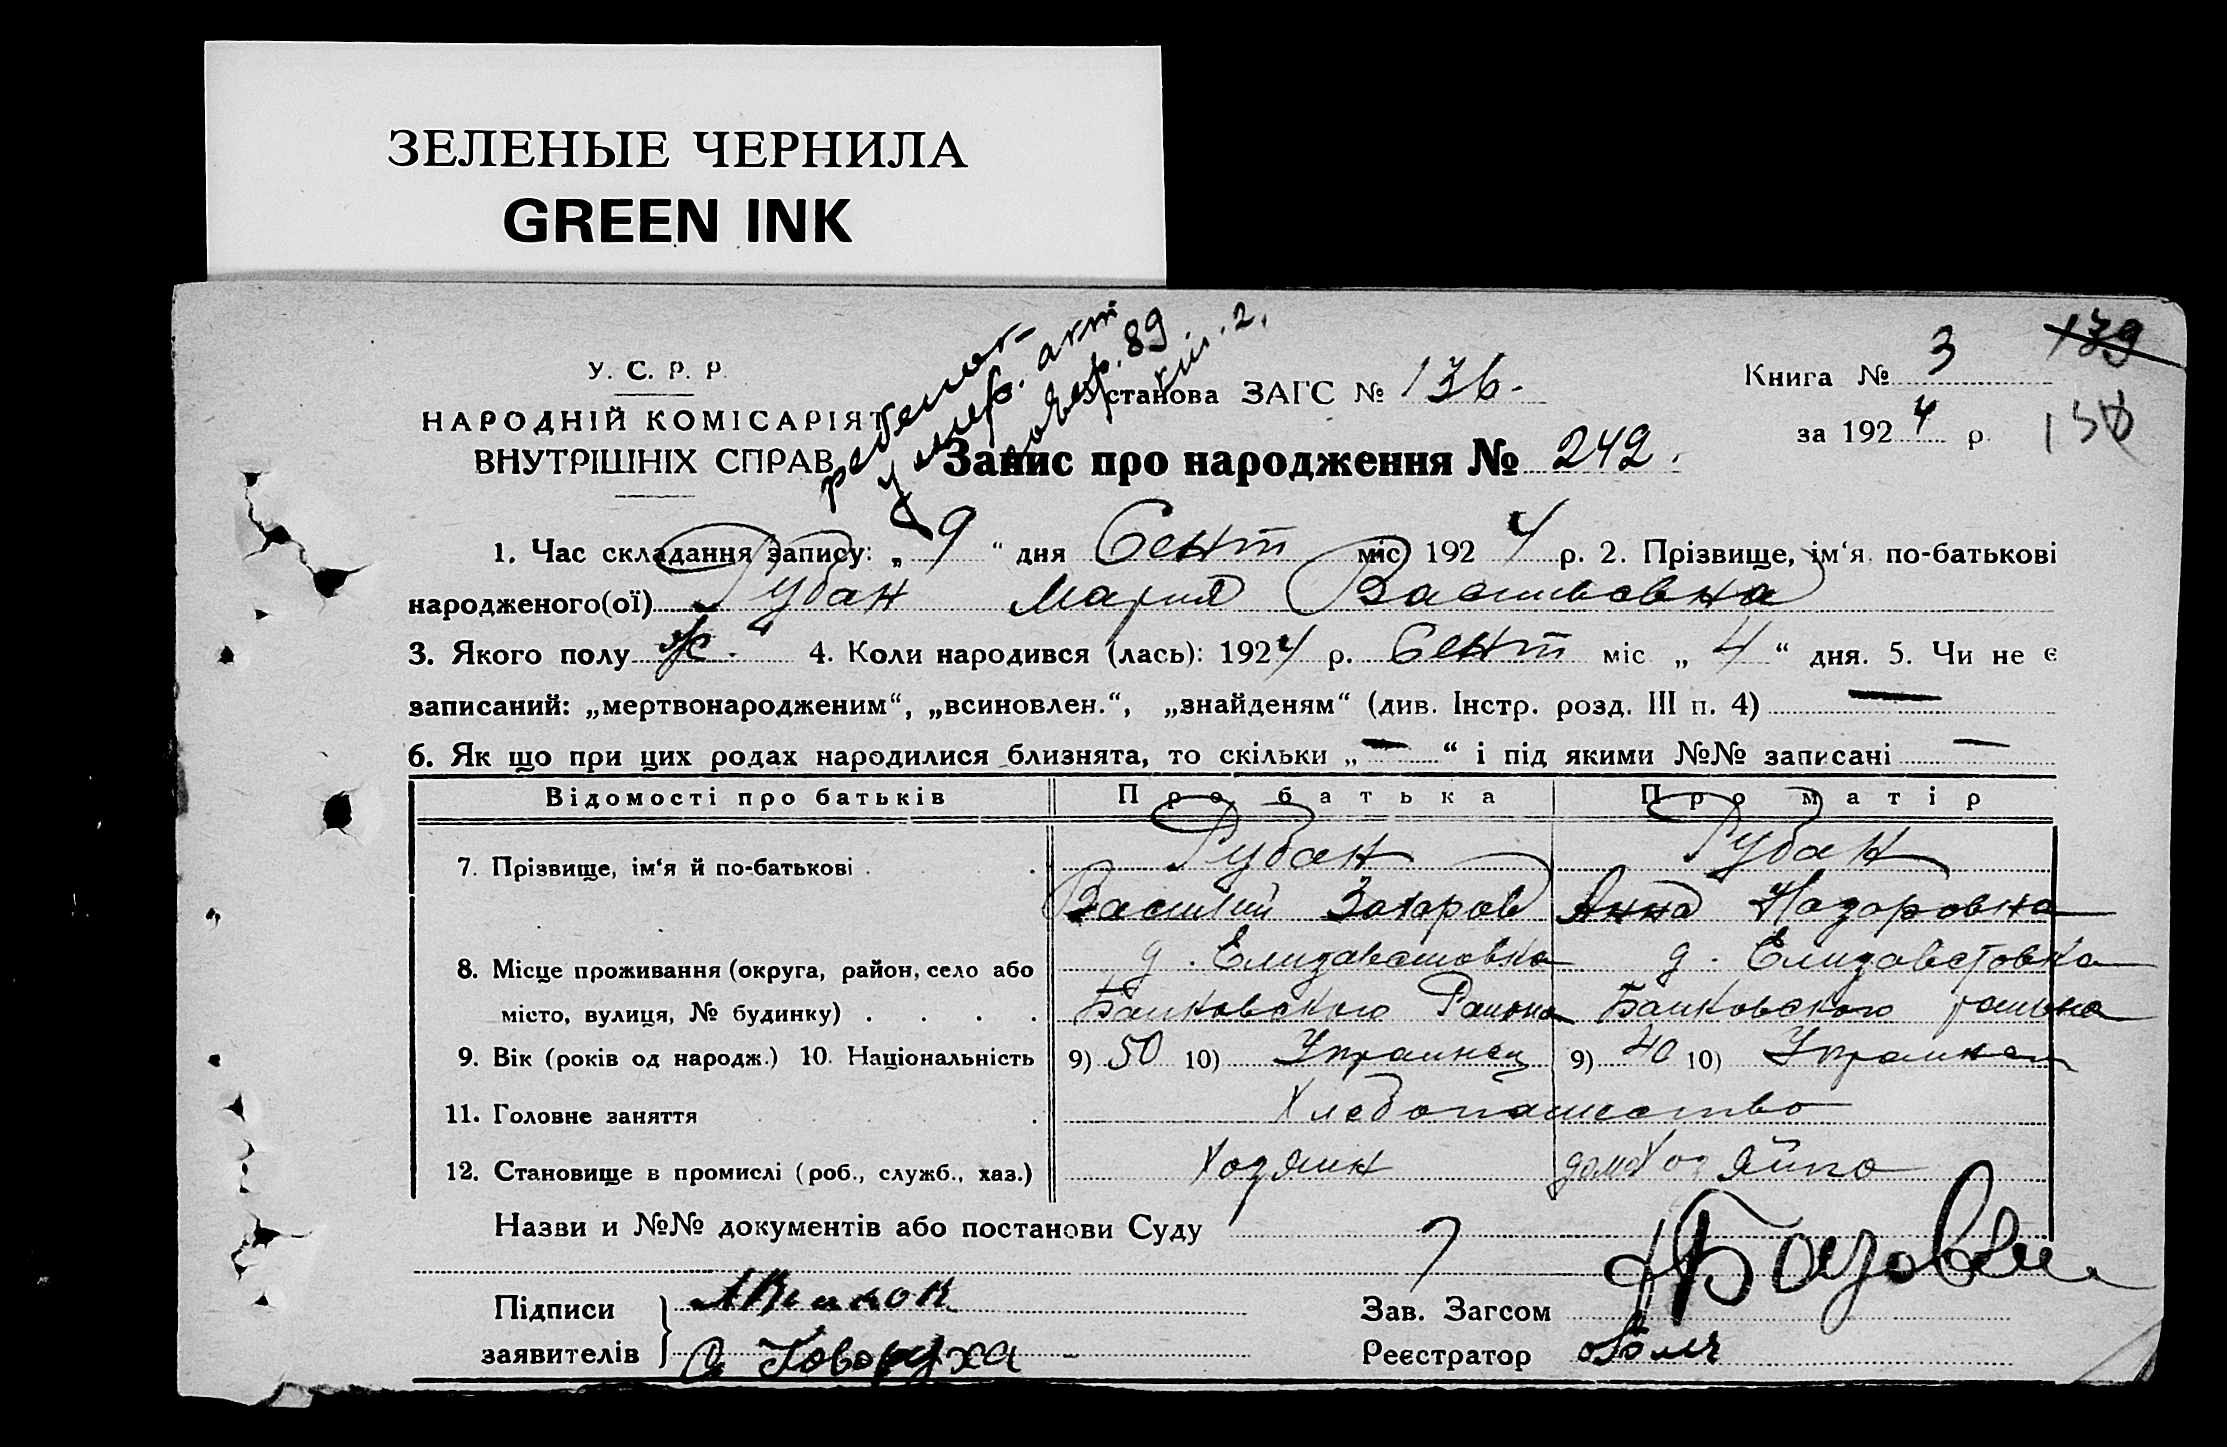 ЗЕЛЕНЫЕ ЧЕРНИЛА
GREEN INK
У. С. Р. Р.
НАРОДНІЙ КОМІСАРІЯТ
ВНУТРІШНІХ СПРАВ
умер. акт
89
Установа ЗАГС № 136.
Книга № 3
139
за 1924 р.
Запис про народження № 242.
1. Час складання запису: „ 9 “ дня Сент міс. 1924 р. 2. Прізвище, ім‘я, по-батькові
народженого(ої) Рубан Мария Васильевна
3. Якого полу ж. 4. Коли народився (лась): 1924 р. Сент міс „ 4 “ дня. 5. Чи не є
записаний: „мертвонародженим“, „всиновлен.“, „знайденям“ (див. Інстр. розд. III п. 4) —
6. Як що при цих родах народилися близнята, то скільки „ — “ і під якими №№ записані —
Відомості про батьків Про батька Про матір
7. Прізвище, ім‘я й по-батькові . . Рубан Рубан
Василий Захаров Анна Назаровна
8. Місце проживання (округа, район, село або д. Елизаветовка д. Елизаветовка
місто, вулиця, № будинку) . . . . Банковского Района Банковского района
9. Вік (років од народж.) 10. Національність 9) 50 10) Украинец 9) 40 10) Украинка
11. Головне заняття . Хлебопашество
12. Становище в промислі (роб., служб., хаз.) Хозяин домохозяйка
Назви и №№ документів або постанови Суду
Підписи
Зав. Загсом
заявителів
Реєстратор